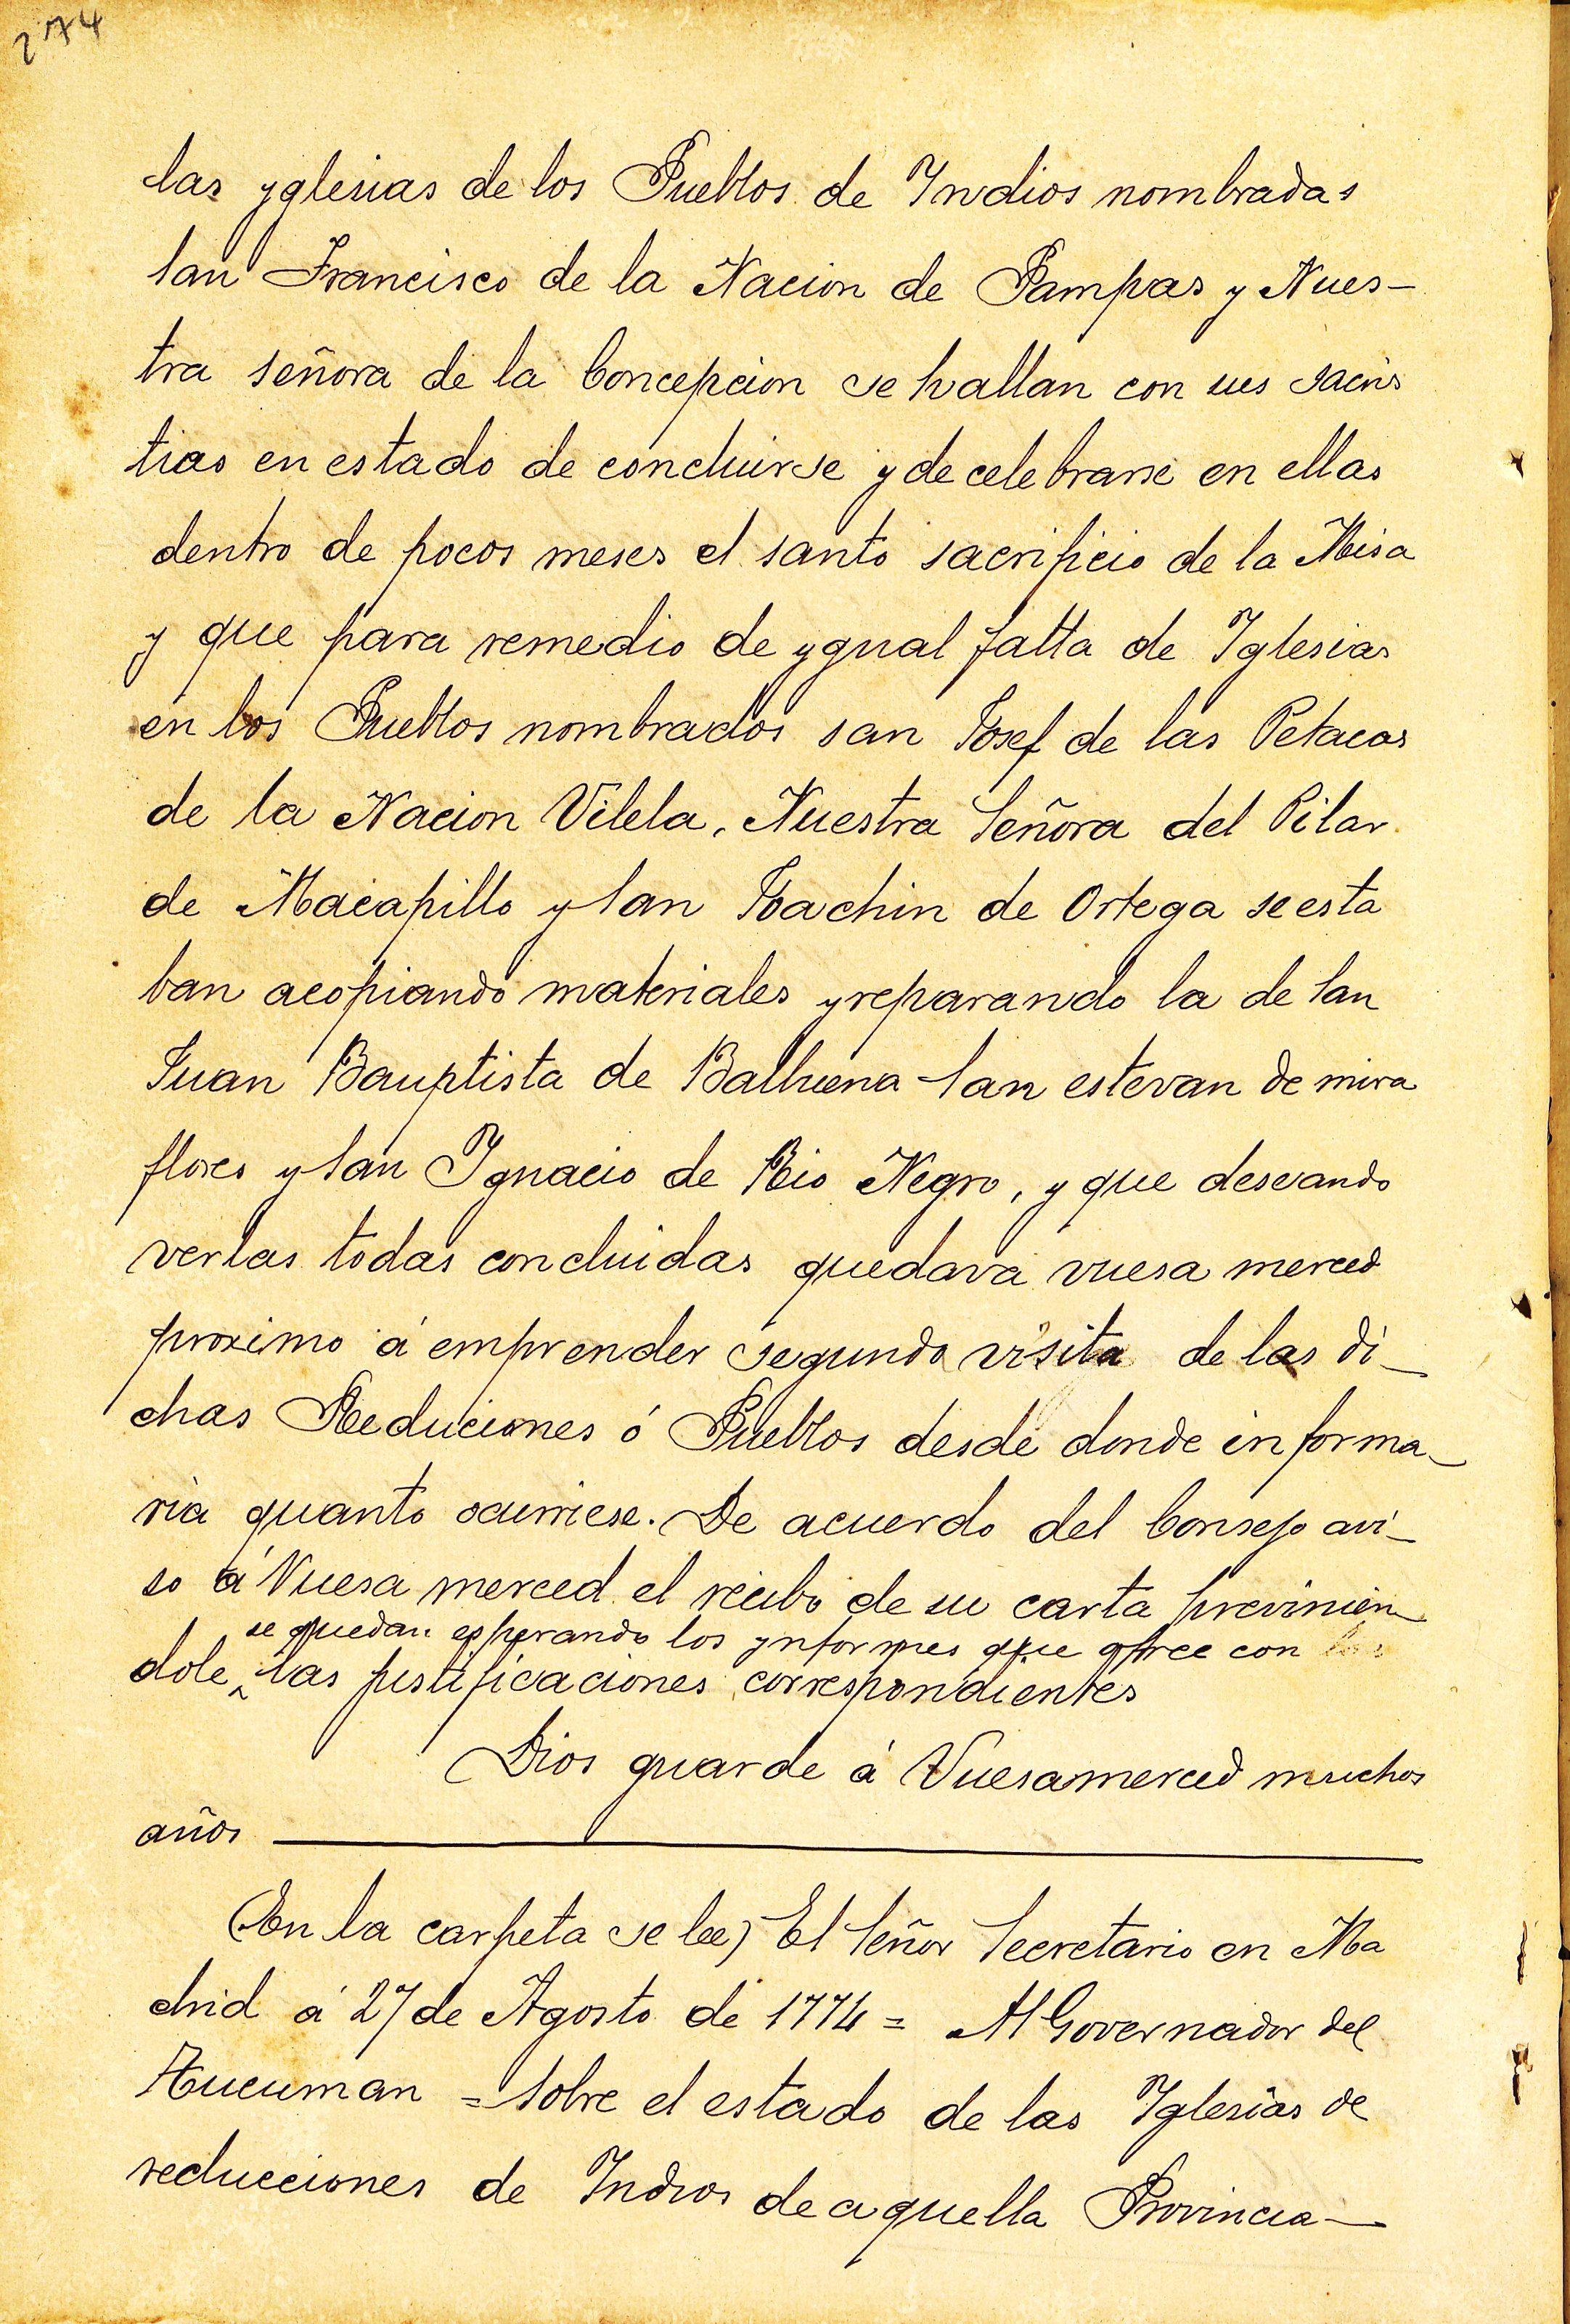 274
las yglesias de los Pueblos de Indios nombradas
San Francisco de la Nacion de Pampas y Nues-
tra señora de la Concepcion se hallan con sus sacris
tias en estado de concluirse y de celebrarse en ellas
dentro de pocos meses el santo sacrificio de la Misa
y que para remedio de ygual falta de Iglesias
en los Pueblos nombrados san Josef de las Petacas
de la Nacion Vilela, Nuestra Señora del Pilar
de Macapillo y San Joachin de Ortega se esta
ban acopiando materiales y reparando la de San
Juan Bauptista de Balbuena San estevan de mira
flores y San Ignacio de Rio Negro, y que deseando
verlas todas concluidas quedava vuesa merced
proximo á emprender segunda visita de las di-
chas Reduciones ó Pueblos desde donde informa-
ria quanto ocurriese. De acuerdo del Consejo avi-
so á Vuesa merced el recibo de su carta previnien-
se quedan esperando los ynformes que ofrece con
dole ^ las justificaciones correspondientes
Dios guarde á Vuesamerced muchos
años
(En la carpeta se lee) El Señor Secretario en Ma
drid á 27 de Agosto de 1774 = Al Governador del
Tucuman = Sobre el estado de las Iglesias de
reducciones de Indios de aquella Provincia-